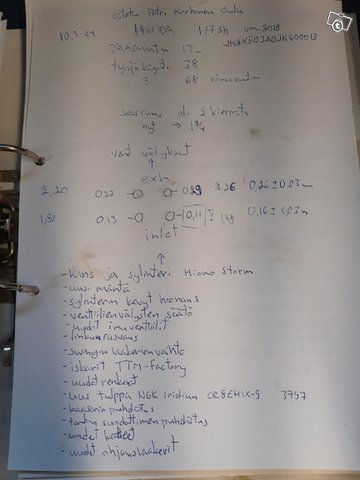 ostettu Petri Korhonen Oulu
10.3-24 HONDA 177.5h vm. 2018
JH2KE03A0JK600013
pääsuutin 132
tyhjäkäynti 38
68 nimesuutin
seosruuvi oli 2 kierrosta
nyt → 1 3/4
vent. välykset
exh
2,20 0,27 0,29 2,26 0,26 ± 0,03 mm
1,80 0,13 0,11 ! 1,48 0,16 ± 0,03 m
inlet
- Kansi ja sylinteri Hiona Storm
- uusi mäntä
- sylinterin kevyt hoonaus
- venttiilienvälysten säätö
- uudet imuventtiilit
- linkun rasvaus
- swingin laakerien vaihto
- iskarit TTM-Factory
- uudet renkaat
- uus tulppa NGK Iridium CR8EHIX-9 3797
- kaasarin puhdistus
- tankin suodattimen puhdistus
- uudet katteet
- uudet ohjauslaakerit